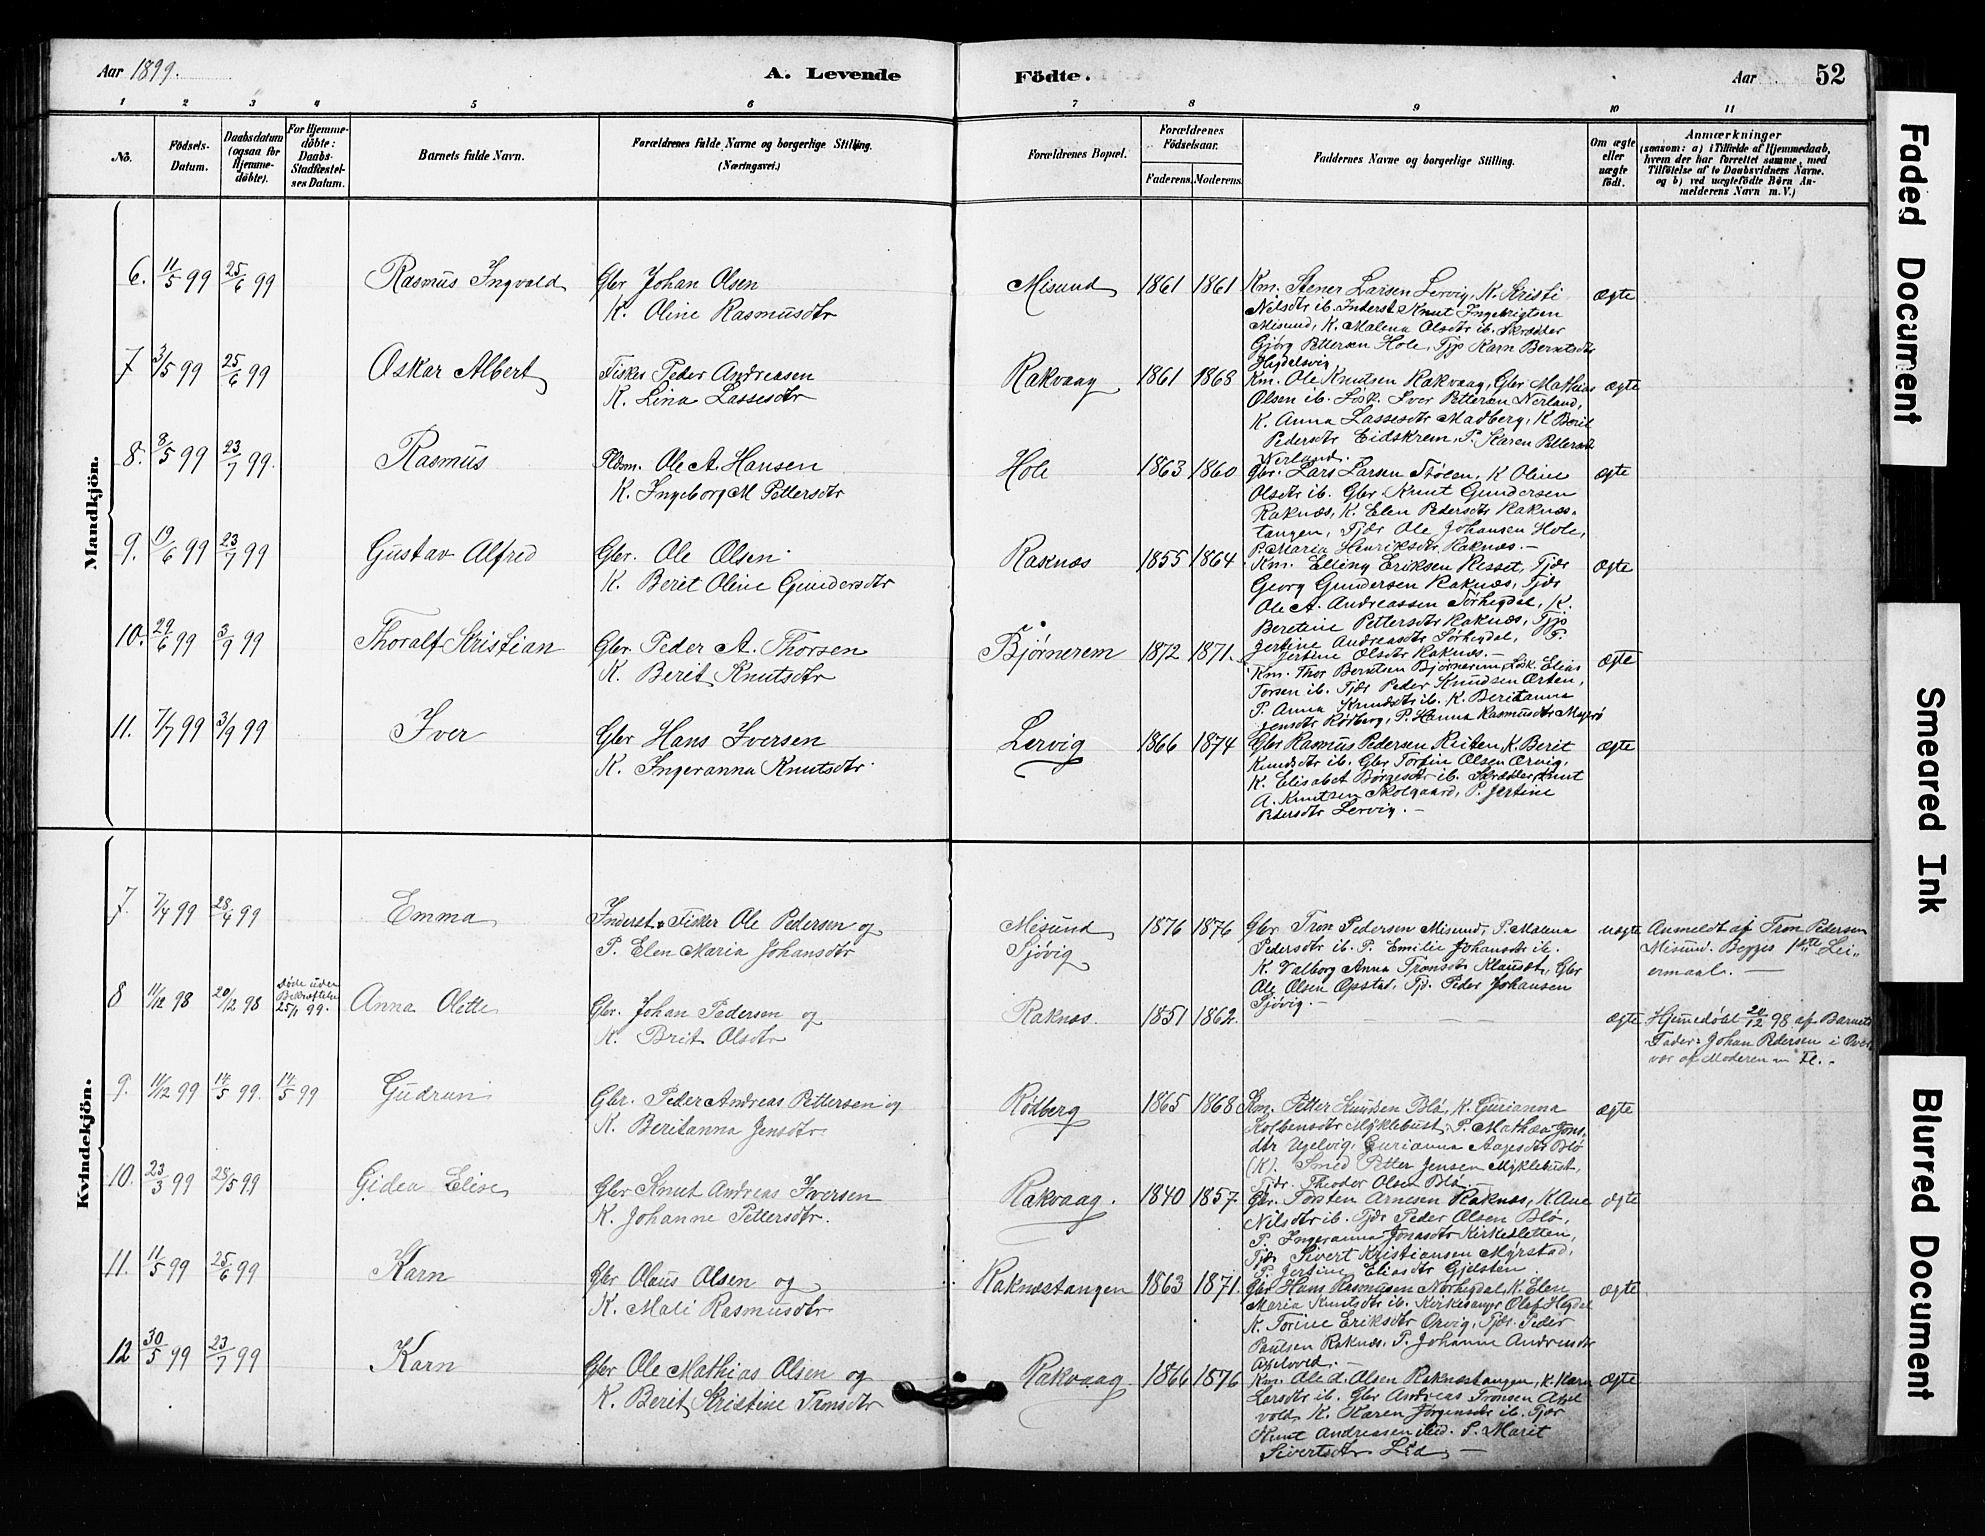 Aar 1899.
A. Levende
Födte.
Aar
52
1 2 3 4 5 6 7 8 9 10 11
No.
Födsels-Datum.
Daabsdatum (ogsaa for Hjemme-döbte).
For Hjemme-döbte: Daabs-Stadfæstel-ses Datum.
Barnets fulde Navn.
Forældrenes fulde Navne og borgerlige Stilling. (Næringsvei.)
Forældrenes Bopæl.
Forældrenes Födselsaar.
Faderens. Moderens.
Faddernes Navne og borgerlige Stilling.
Om ægte eller uægte födt.
Anmærkninger
(saasom: a) i Tilfælde af Hjemmedaab,
hvem der har forrettet samme, med
Tilföielse af to Daabsvidners Navne.
og b) ved uægtefödte Börn An-
melderens Navn m. V.)
Mandkjön.
6. 11/5 99 25/6 99 Rasmus Ingvald
Gbr Johan Olsen
K. Oline Rasmusdtr
Misund 1861 1861
Km. Stener Larsen Lervig, K. Kristi
Nilsdtr ib. Inderst Knut Ingebrigtsen
Misund, K. Malena Olsdtr ib. Skrædder
Gjørg Pettersen Hole, Tjp Karn Berntsdtr
Hegdelsvig
ægte
7 3/5 99 25/6 99 Oskar Albert
Fisker Peder Andreasen
K. Lina Lassesdtr
Rakvaag 1861 1868
Km. Ole Knutsen Rakvaag, Gbr Mathias
Olsen ib. Løsk. Iver Pettersen Nerland,
K. Anna Lassesdtr Madberg, K Berit
Pedersdtr Eidskrem, P. Karen Pettersdtr
Nerland.
ægte
8. 8/5 99 23/7 99. Rasmus
Pldsm. Ole A. Hansen
K. Ingeborg M Pettersdtr
Hole 1863 1860
Gbr. Lars Larsen Stølen, K Oline
Olsdtr ib. Gbr Knut Gundersen
Raknæs, K. Elen Pedersdtr Raknæs-
tangen, Tjdr Ole Johansen Hole,
P. Maria Henriksdtr Raknæs. —
ægte
9. 19/6 99 23/7 99 Gustav Alfred
Gbr. Ole Olsen
K. Beret Oline Gundersdtr
Raknæs 1855 1864
Km. Elling Eriksen Risset, Tjdr
Georg Gundersen Raknæs, Tjdr
Ole A. Andreassen Sørhegdal, K.
Beretine Pettersdtr Raknæs, Tjp
Jertine Andreasdtr Sørhegdal, P.
Jertine Olsdtr Raknæs. —
ægte
10. 29/6 99 3/9 99 Thoralf Kristian
Gbr. Peder A. Thorsen
K. Berit Knutsdtr
Bjørnerem 1872 1871.
Km. Thor Berntsen Bjørnerem, Løsk. Elias
Torsen ib. Tjdr Peder Knudsen Orten,
P. Anna Knudsdtr ib. K. Beritanna
Jensdtr Rødberg, P. Hanna Rasmusdtr Magerø
ægte
11. 7/7 99 3/9 99 Iver
Gbr Hans Iversen
K. Ingeranna Knutsdtr
Lervig 1866 1874
Gbr Rasmus Pedersen Reiten, K. Berit
Knudsdtr ib. Gbr Torfin Olsen Orvig,
K. Elisabet Børgesdtr ib. Skrædder Knut
A. Knutsen Skolgaard, P. Jertine
Pedersdtr Lervig. —
ægte
Kvindekjön.
7. 7/4 99 28/4 99 Emma
Inderst & Fisker Ole Pedersen og
P. Elen Maria Johansdtr
Misund
Sjøvig
1876 1876
Gbr Tron Pedersen Misund, P. Malena
Pedersdtr ib. P. Emilie Johansdtr ib.
K. Valborg Anna Tronsdtr Klauset, Gbr
Ole Olsen Opstad, Tjd. Peder Johansen
Sjøvig. —
uægte
Anmeldt af Tron Pedersen
Misund. Begges 1ste Lei-
ermaal. —
8 11/12 98 20/12 98
døde uden
Bekræftelse
25/1 99.
Anna Olette
Gbr. Johan Pedersen og
K. Brit Olsdtr
Raknæs. 1851 1862.
ægte
Hjemedøbt 20/12 98 af Barnets
Fader Johan Pedersen i Over-
vær af Moderen
9. 11/12 99 14/5 99. 14/5 99 Gudrun
Gbr. Peder Andreas Pettersen og
K. Beritanna Jensdtr
Rødberg 1865 1868
Km. Petter Knudsen Blø, K. Gurianna
Kolbensdtr Myklebust, P. Mathea Jons
dtr Ugelvig, Gurianna Aagesdtr Blø
(K). Smed Petter Jensen Myklebust,
Tjdr. Theodor Olsen Blø. —
ægte
10. 23/3 99 28/5 99 Gidea Elise
Gbr Knut Andreas Iversen
K. Johanne Pettersdtr.
Rakvaag. 1840 1857.
Gbr. Torsten Arnesen Raknæs, K. Ane
Nilsdtr ib. Tjdr Peder Olsen Blø,
P. Ingeranna Jonasdtr Kirkesletten,
Tjdr Sivert Kristiansen Myrstad,
P. Jertine Eliasdtr Gjelsten
ægte
11. 11/5 99 25/6 99 Karn
Gbr Olaus Olsen og
K. Mali Rasmusdtr
Raknæstangen 1863 1871.
Gbr Hans Rasmusen Norhegdal, K. Elen
Maria Knutsdtr ib. Kirkesanger Olaf Hegdal
K. Torine Eriksdtr Orvig, Tjdr. Peder
Paulsen Raknæs. P. Johanne Andreasdtr
Axelvold. —
ægte
12 30/5 99 23/7 99 Karn
Gbr Ole Mathias Olsen og
K. Berit Kristine Tronsdtr
Rakvaag 1866 1876
Km. Ole A. Olsen Raknæstangen, K. Karn
Larsdtr ib. Gbr Andreas Tronsen Axel
vold, K. Karen Jørgensdtr ib. Tjdr
Knut Andreassen Lid. P. Marit
Sivertsdtr Lid —
ægte
Faded Document
Smeared Ink
Blurred Document